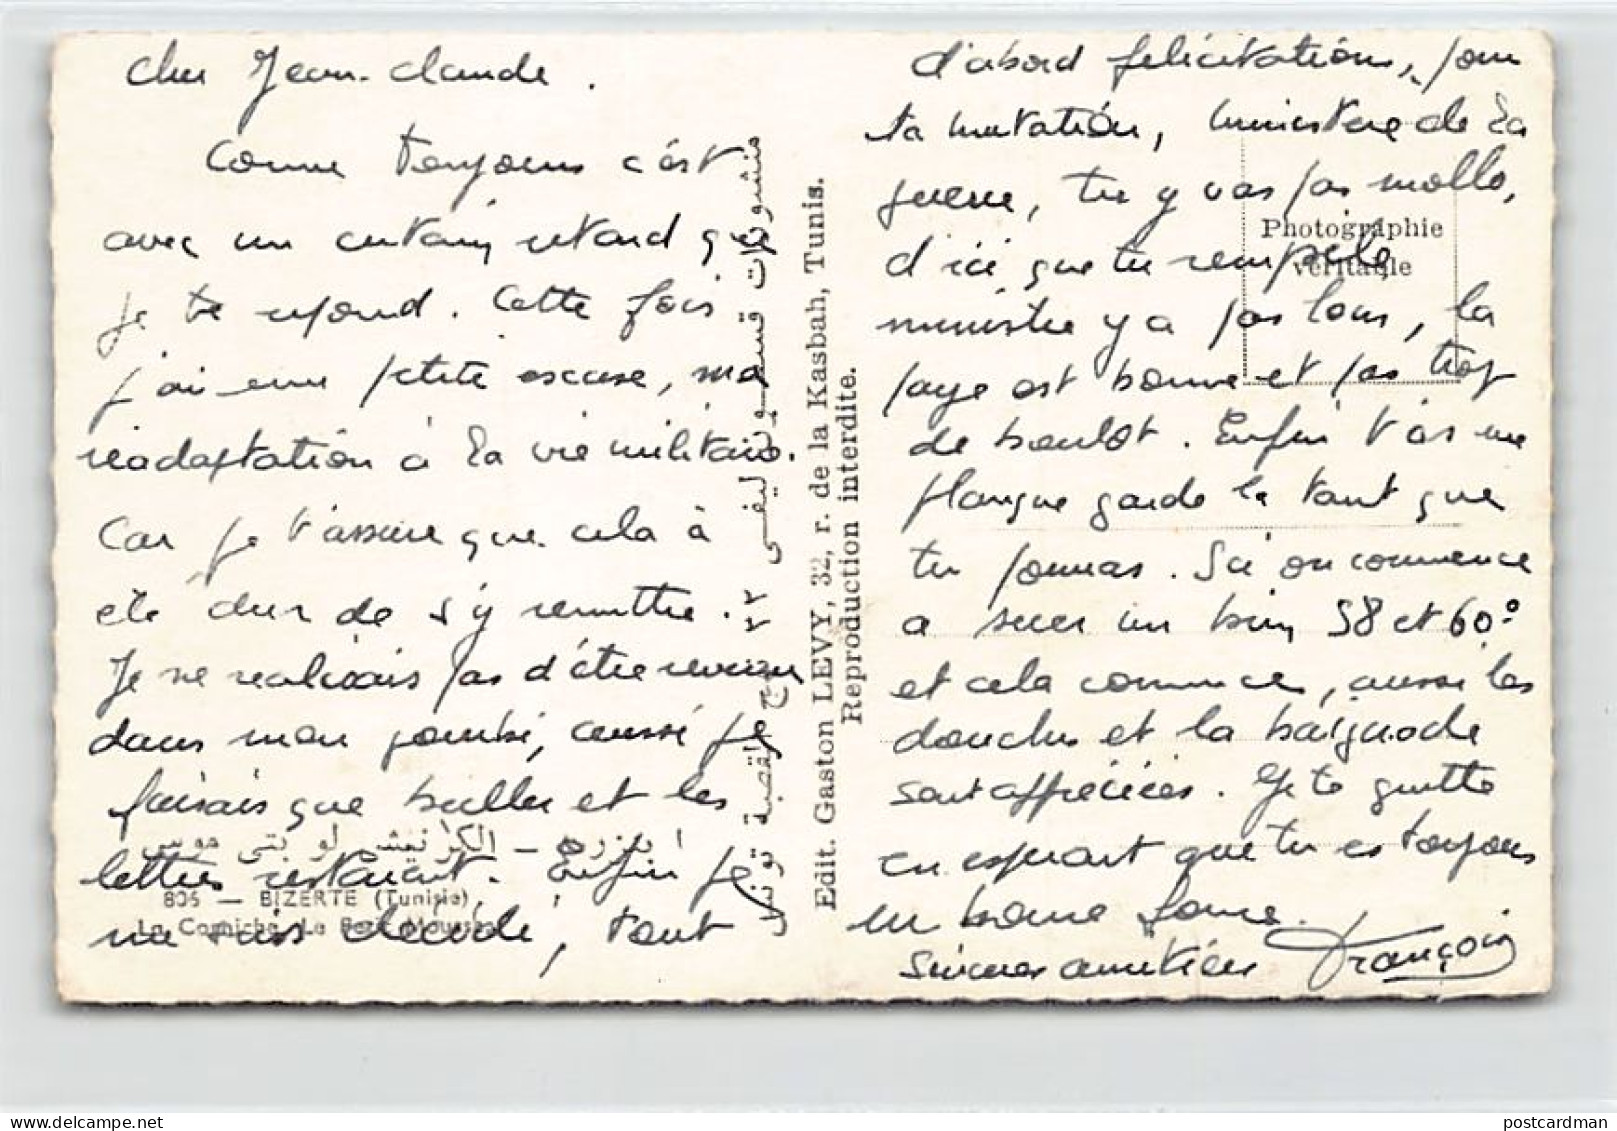 Cher Jean-Claude.
Comme toujours c'est
avec un certain retard que
je te repond. Cette fois
j'ai une petite excuse, ma
réadaptation à la vie militaire.
Car je t'assure que cela à
été dur de s'y remettre.
Je ne realisais pas d'être revenu
dans mon gourbi, aussi je
faisais que buller et les
lettres restaient. Enfin je
me suis décidé, tout
d'abord félicitations, pour
ta mutation, ministere de la
guerre, tu y vas pas mollo,
d'ici que tu remplace
ministre y a pas loin, la
paye est bonne et pas trop
de boulot. Enfin t'as une
planque garde la tant que
tu pourras. Ici on commence
a suer un bien 58 et 60°
et cela commence, aussi les
douches et la baignade
sont appréciées. Je te quitte
en esperant que tu es toujours
en bonne forme.
Sinceres amitiées François
منشورات قسطون ليفي ٣٢ نهج القصبة تونس
Edit. Gaston LEVY, 32, r. de la Kasbah, Tunis.
Reproduction interdite.
Photographie
véritable
بنزرت – الكرنيش لو بتي موس
805 — BIZERTE (Tunisie)
La Corniche. Le Petit Mousse
postcardman